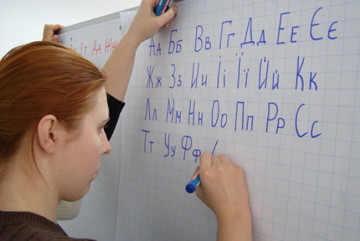 Аа Бб Вв Гг Дд Ее Єє
Жж Зз Ии Іі Її Йй Кк
Лл Мм Нн Оо Пп Рр Сс
Тт Уу Фф